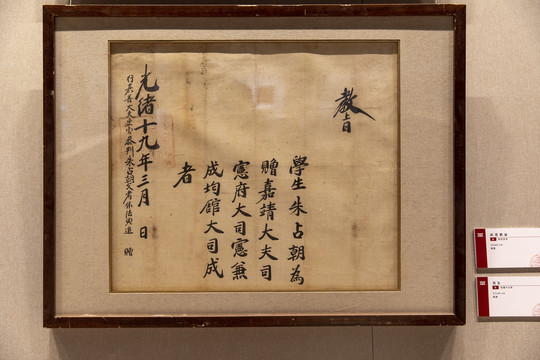 教旨
學生朱占朝為
贈嘉靖大夫司
憲府大司憲兼
成均館大司成
者
光緒十九年三月 日
行嘉善大夫 參判朱占 考依法典追 贈